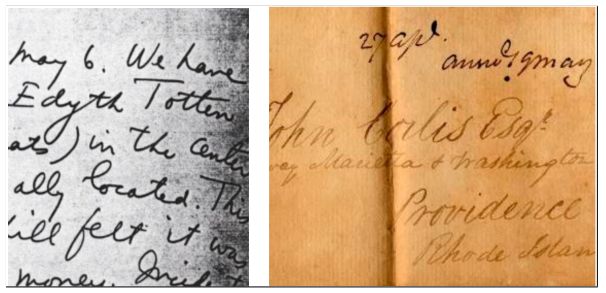 May 6. We have
Edyth Totten
ats) in the center
ally located. This
ill felt it was
money.
27 apl.
19 may
John Corlis Esqr.
Marietta & Washington
Providence
Rhode Islan